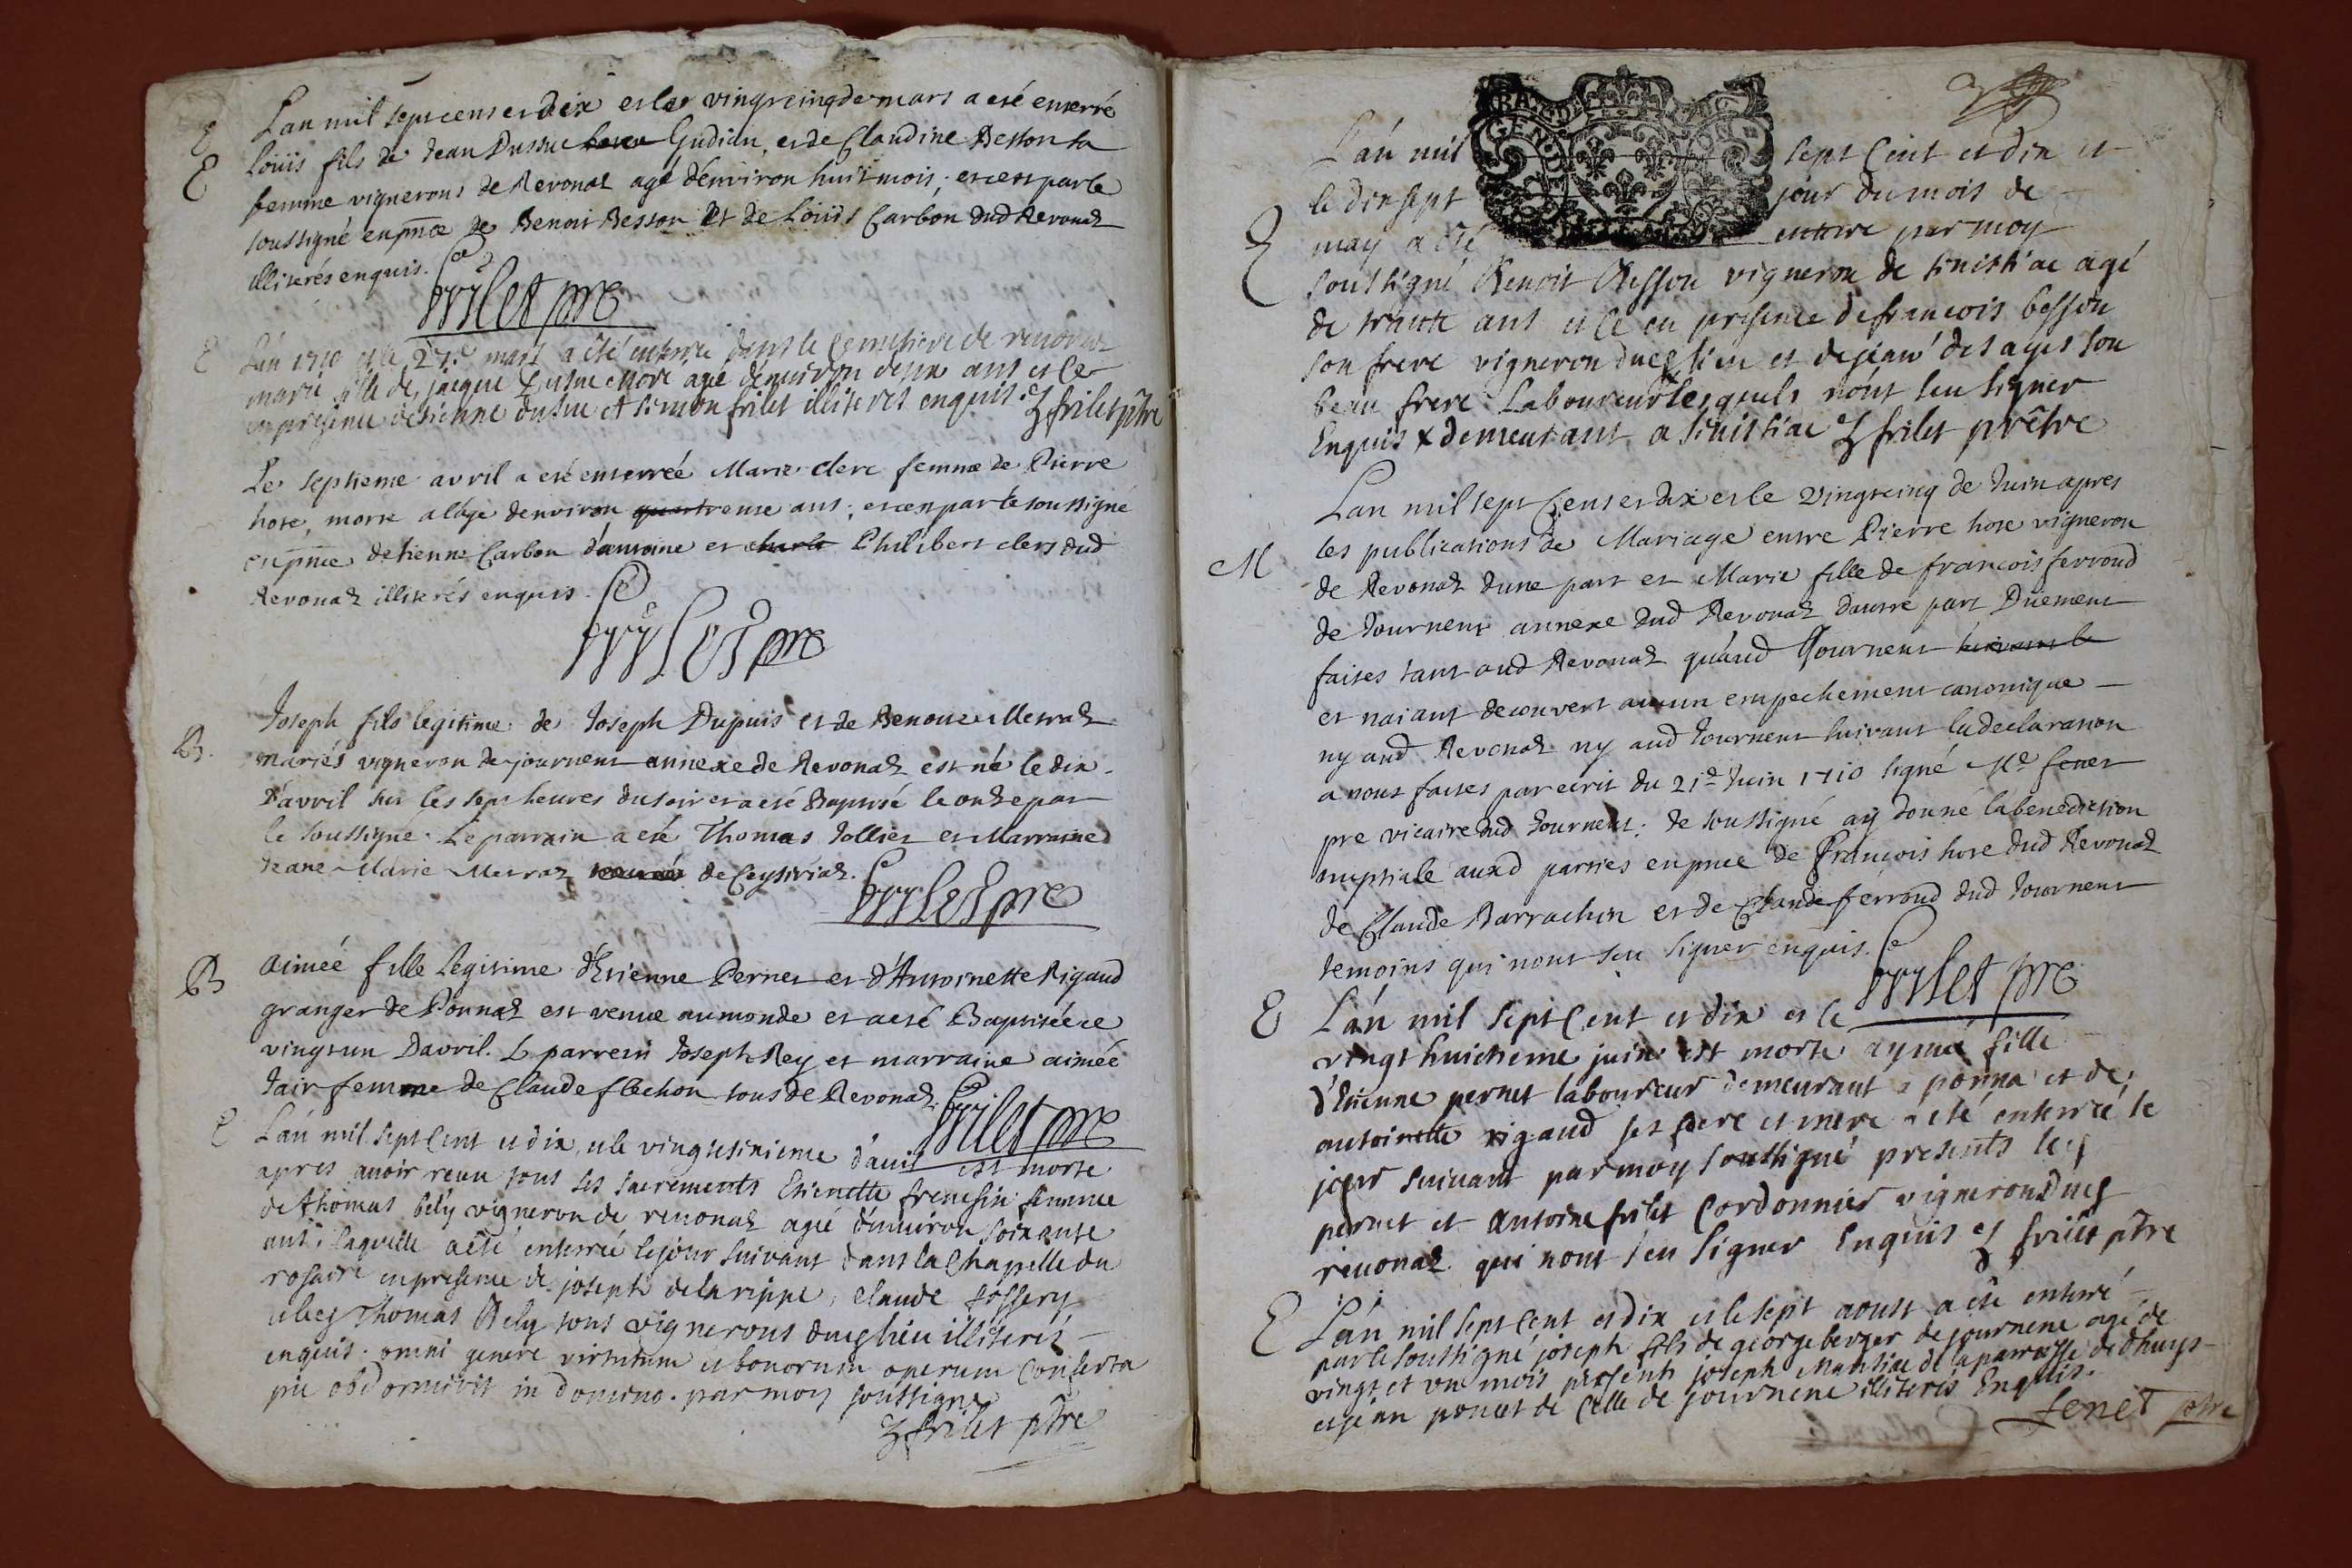 E
Lan mil sept cens et dix et le vingt cinq de mars a eté enterré
E Loüis fils de Jean Dussuc Gudian, et de Claudine Besson sa
femme vignerons de Revonaz agé d'environ huit mois, et ce par le
soussigné en pnce de Benoit Besson et de Loüis Carbon dud Revonaz
illiterés enquis.
frilet pre
E L'an 1710 et le 27e mars a été enterré dans le cemetiere de revonaz
marie fille de jacque dussuc agé denviron deux ans et ce
en presence détienne dussuc et simon frilet illiteres enquis frilet ptre
Le septieme avril a eté enterreé Marie clerc femme de Pierre
hote, morte a l'age denviron ans, et ce par le soussigné
en pnce detienne Carbon d'antoine et charle Philibert clerc dud
Revonaz illiterés enquis.
frilet pre
B. Joseph fils legitime de Joseph Dupuis et de Benoite Metraz
mariés vigneron de journens annexe de Revonaz est né le dix
d'avril sur les sept heures du soir et a eté Baptisé le onze par
le soussigné. Le parrain a eté Thomas Jollier et Marraine
Jeane Marie Metraz de Ceyssiriaz.
frilet pre
B aimeé fille legitime d'Etienne Pernet et d'Antoinette Rigaud
granger de Ponnaz est venue au monde et a eté Baptiseé ce
vingt un D'avril. L parrein Joseph Rey et marraine aimeé
Jair femme de Claude flechon tous de Revonaz.
frilet pre
E L'an mil sept cent et dix, et le vingt sixieme d'avril est morte
apres avoir receu tous ses sacrements Etienette frenesin femme
de thomas bely vigneron de revonaz agé d'environ soixante
ans, laquelle a été enterreé le jour suivant dans la Chapelle du
rosaire en presence de joseph delarippe, claude
et led Thomas Bely tous vignerons dued lieu illiterés
enquis. omni genere virtutum et bonorum operum conferta
pie obdormivit in domino. par moy soussigné
frilet ptre
GEN
L'an mil sept cent et dix et
le dix sept jour du mois de
E may a été enterré par moy
soussigné Benoit Besson vigneron de sinissiac agé
de trante ans et ce en presence de francois besson
son frere vigneron dued lieu et de jean desages son
beau frere Laboureur lesquels n'ont sceu signer
Enquis x demeurant a sinissiac frilet prêtre
Lan mil sept Cens et dix et le vingt cinq de Juin apres
les publications de Mariage entre Pierre hote vigneron
M de Revonaz dune part et Marie fille de francois ferroud
de Journens annexe dud Revonaz dautre part Düement
faites tant aud Revonaz qu'aud Journens suivant le
et naiant decouvert aucun empechement canonique
ny aud Revonaz ny aud Journens suivant la declaration
a nous faites par ecrit du 21e Juin 1710 signé Me fenet
pre vicaire dud Journens; Je soussigné ay donné la benediction
nuptiale auxd parties en pnce de François hote dud Revonaz
de Claude Barrachin et de Claude ferroud dud Journens
temoins qui nont sceu signer enquis.
frilet pre
E L'an mil sept Cent et dix et le
vingt huictieme juin est morte aymeé fille
d'Etienne pernet laboureur demeurant a ponna et de
antoinette rigaud ses pere et mere a eté enterreé le
jour suivant par moy soussigné presents led
pernet et antoine frilet Cordonnier vignerons dued
revonaz qui nont sceu signer Enquis frilet ptre
E L'an mil sept cent et dix et le sept aoust a été enterré
par le soussigné joseph fils de george berger de journens agé de
vingt et un mois presents joseph Mansiac de la parroisse de dhuys
et jean poncet de Celle de journens illiterés Enquis.
fenet ptre